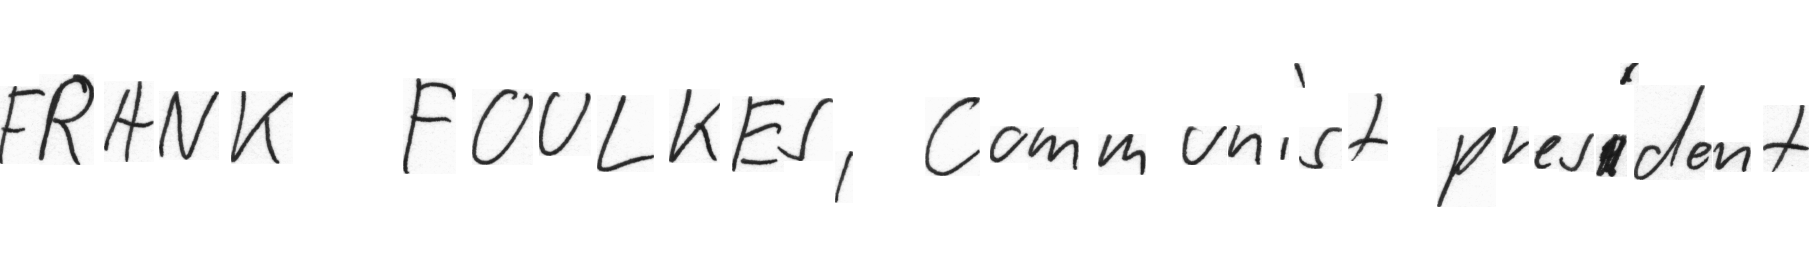 FRANK FOULKES, Communist president